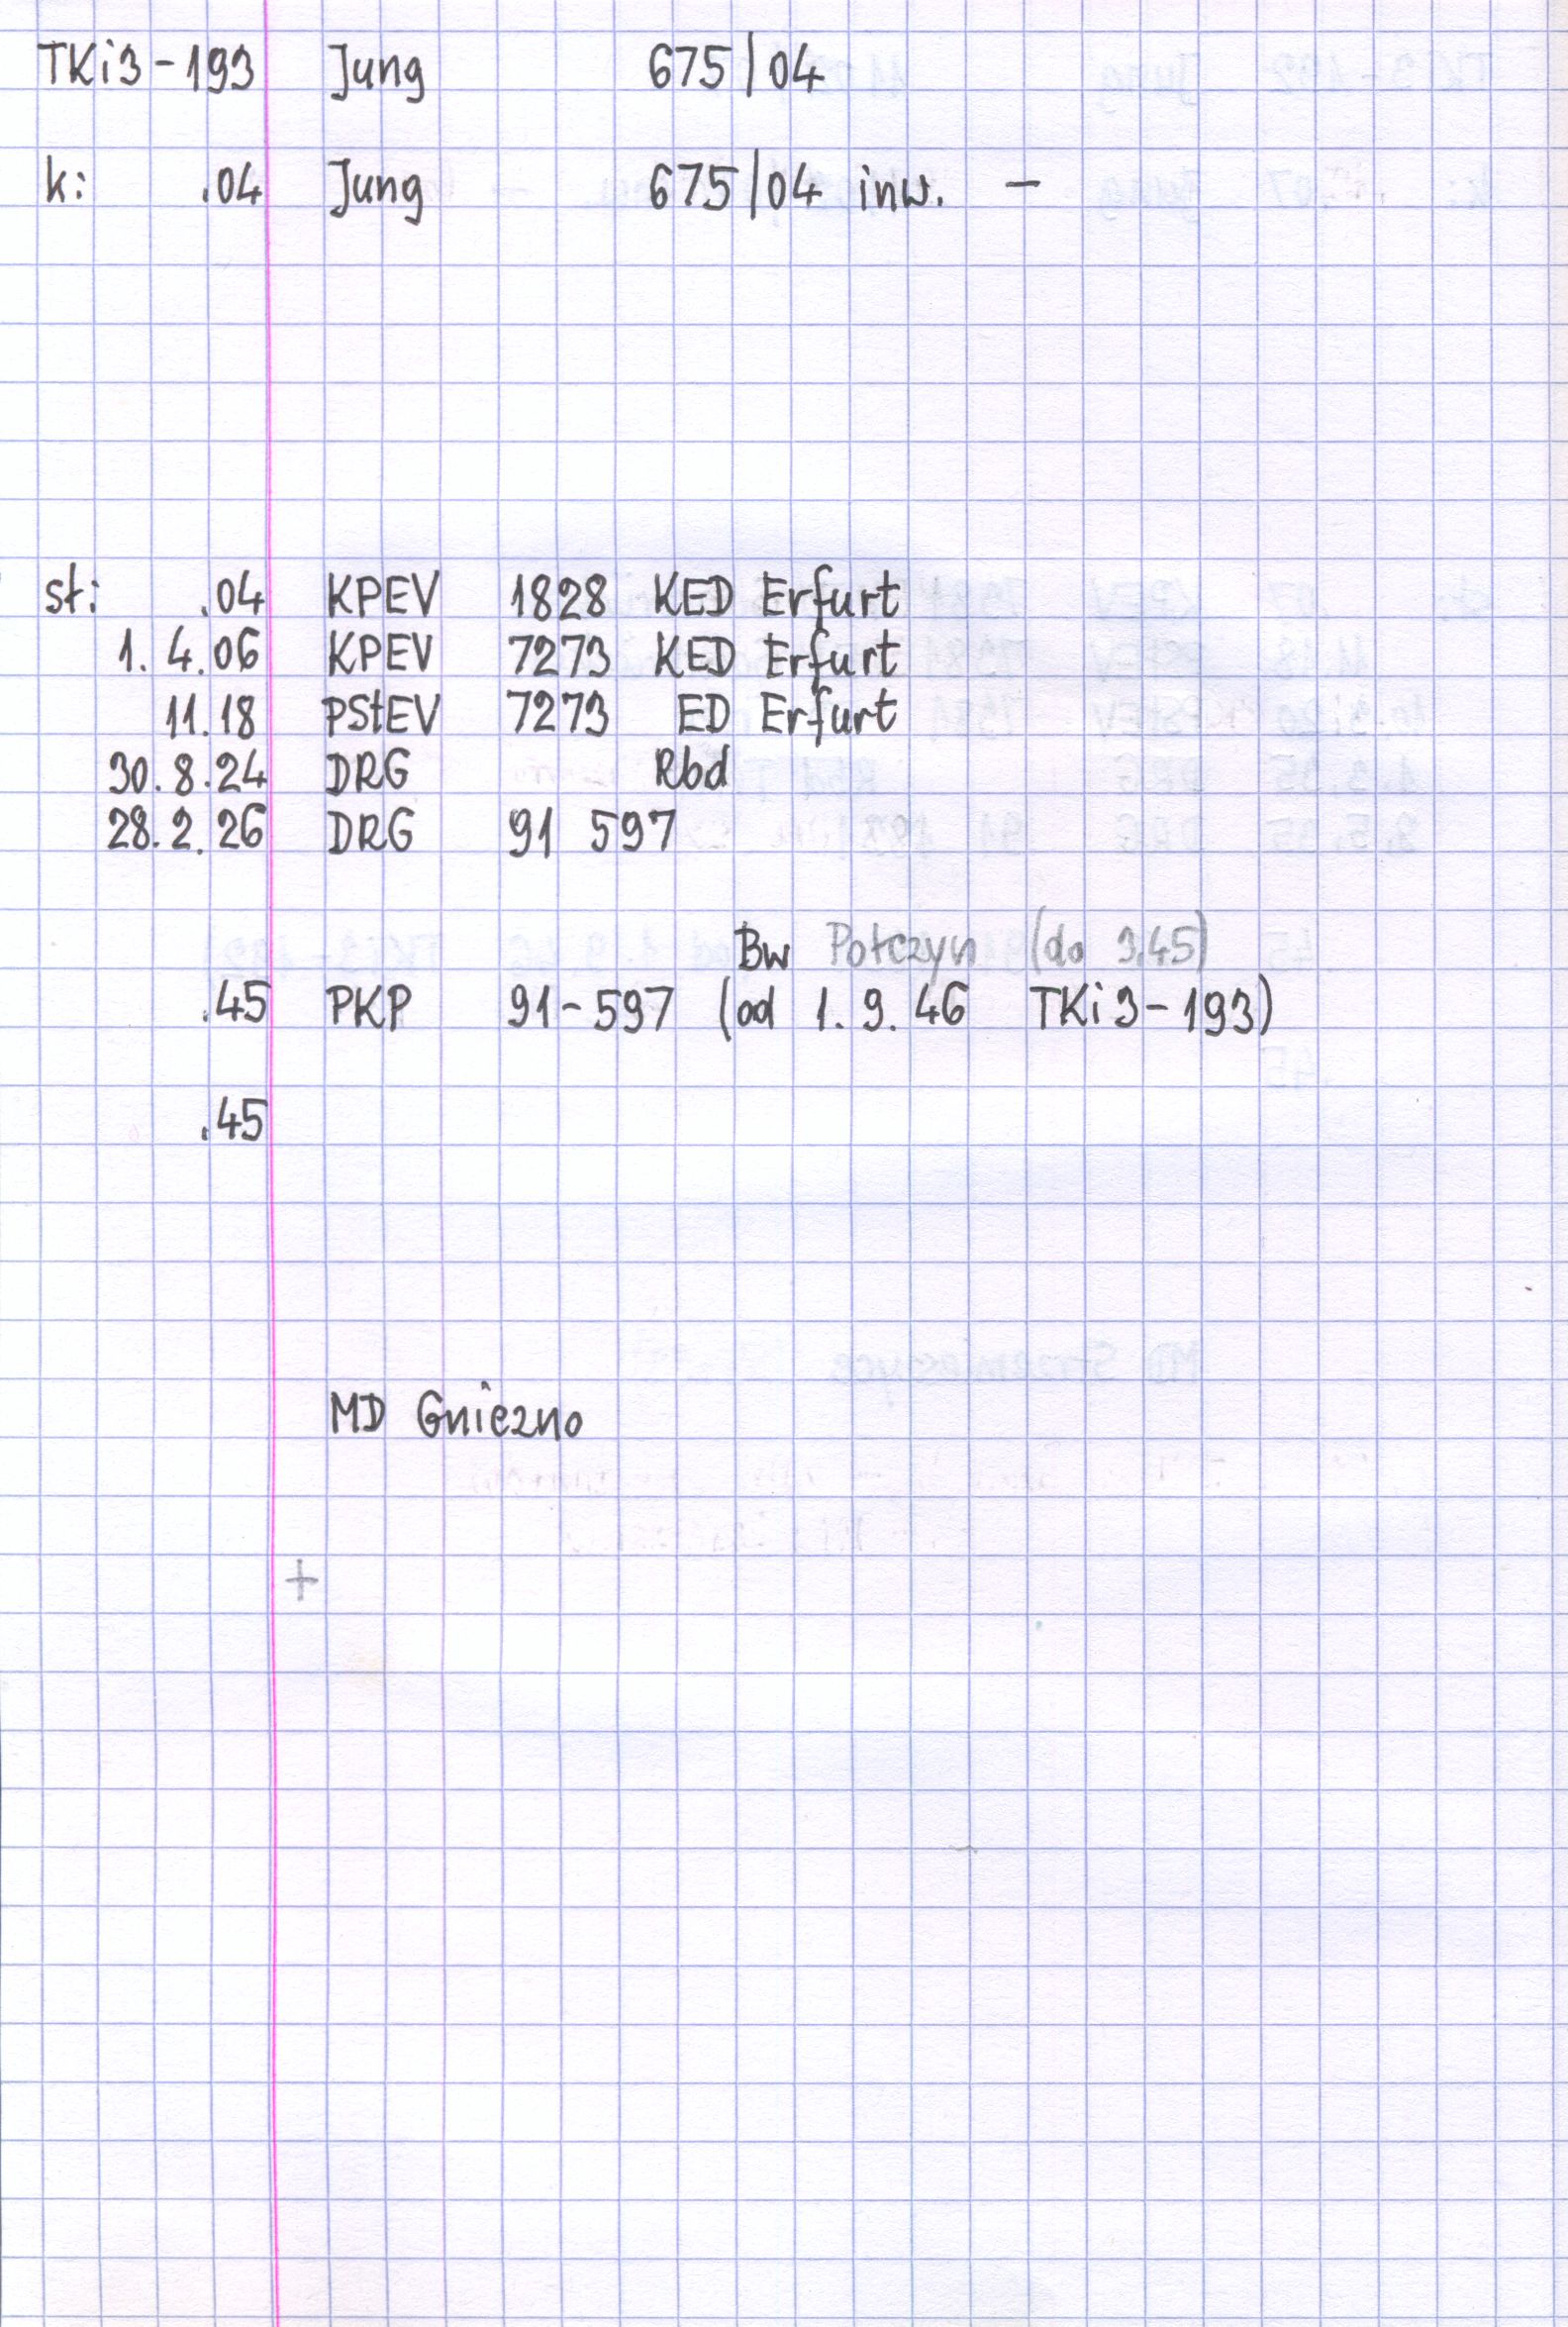 TKi3-193 Jung 675/04
k: .04 Jung 675/04 inw. -
sł: .04 KPEV 1828 KED Erfurt
1.4.06 KPEV 7273 KED Erfurt
11.18 PStEV 7273 ED Erfurt
30.8.24 DRG Rbd
28.2.26 DRG 91 597
Bw Połczyn (do 3.45)
.45 PKP 91-597 (od 1.9.46 TKi3-193)
.45
MD Gniezno
+